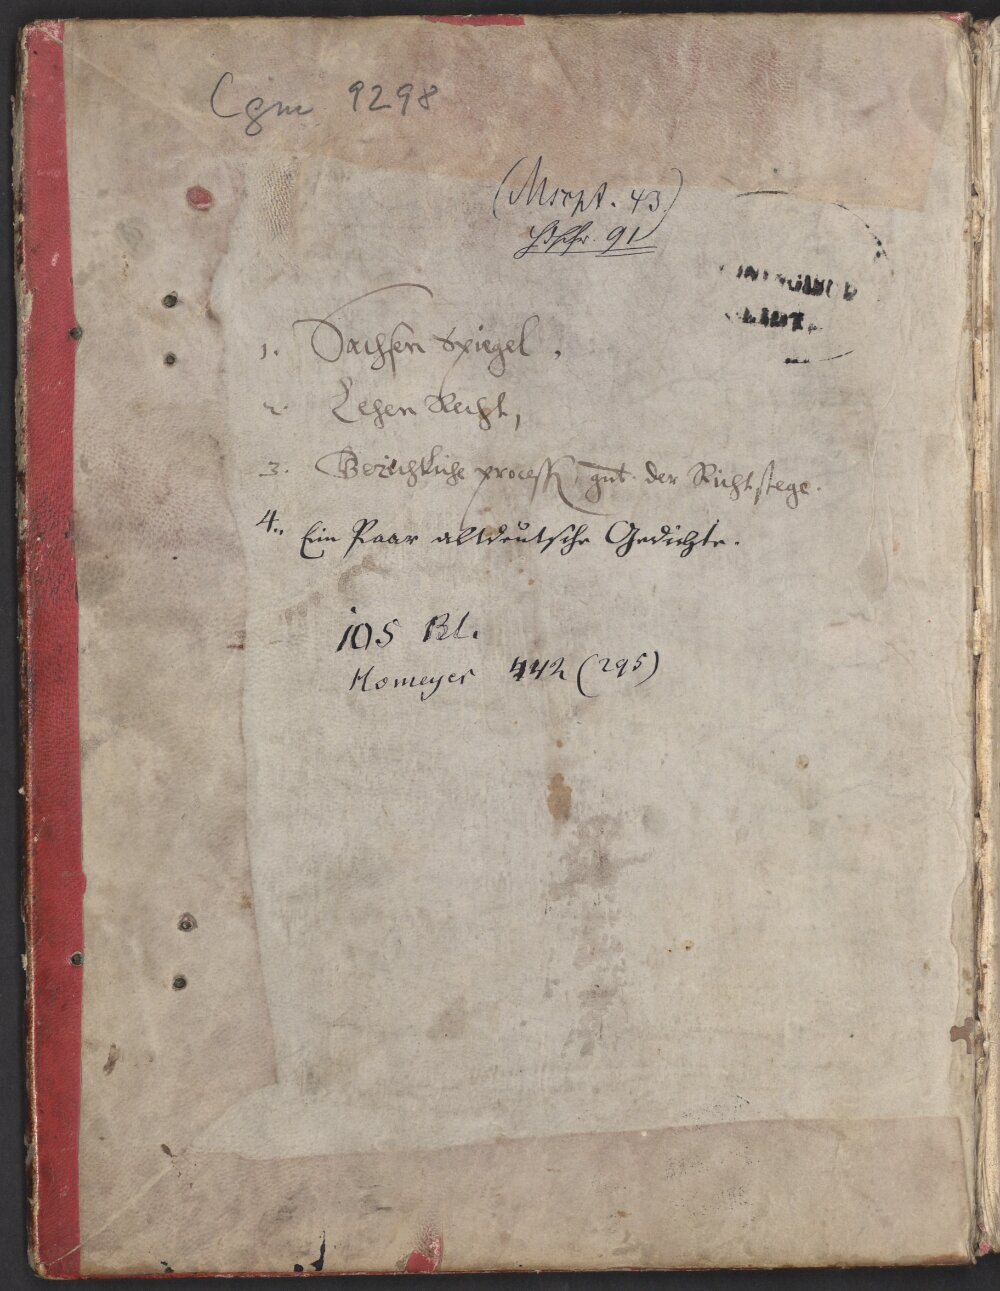 Cgm 9298
(Mscpt. 43)
Hdschr. 91
1. Sachsen Spiegel.
2. Lehen Recht,
3. Gerichtliche process, gnt. der Richtstege.
4. Ein Paar altdeutsche Gedichte.
105 Bl.
Homeyer 442 (295)